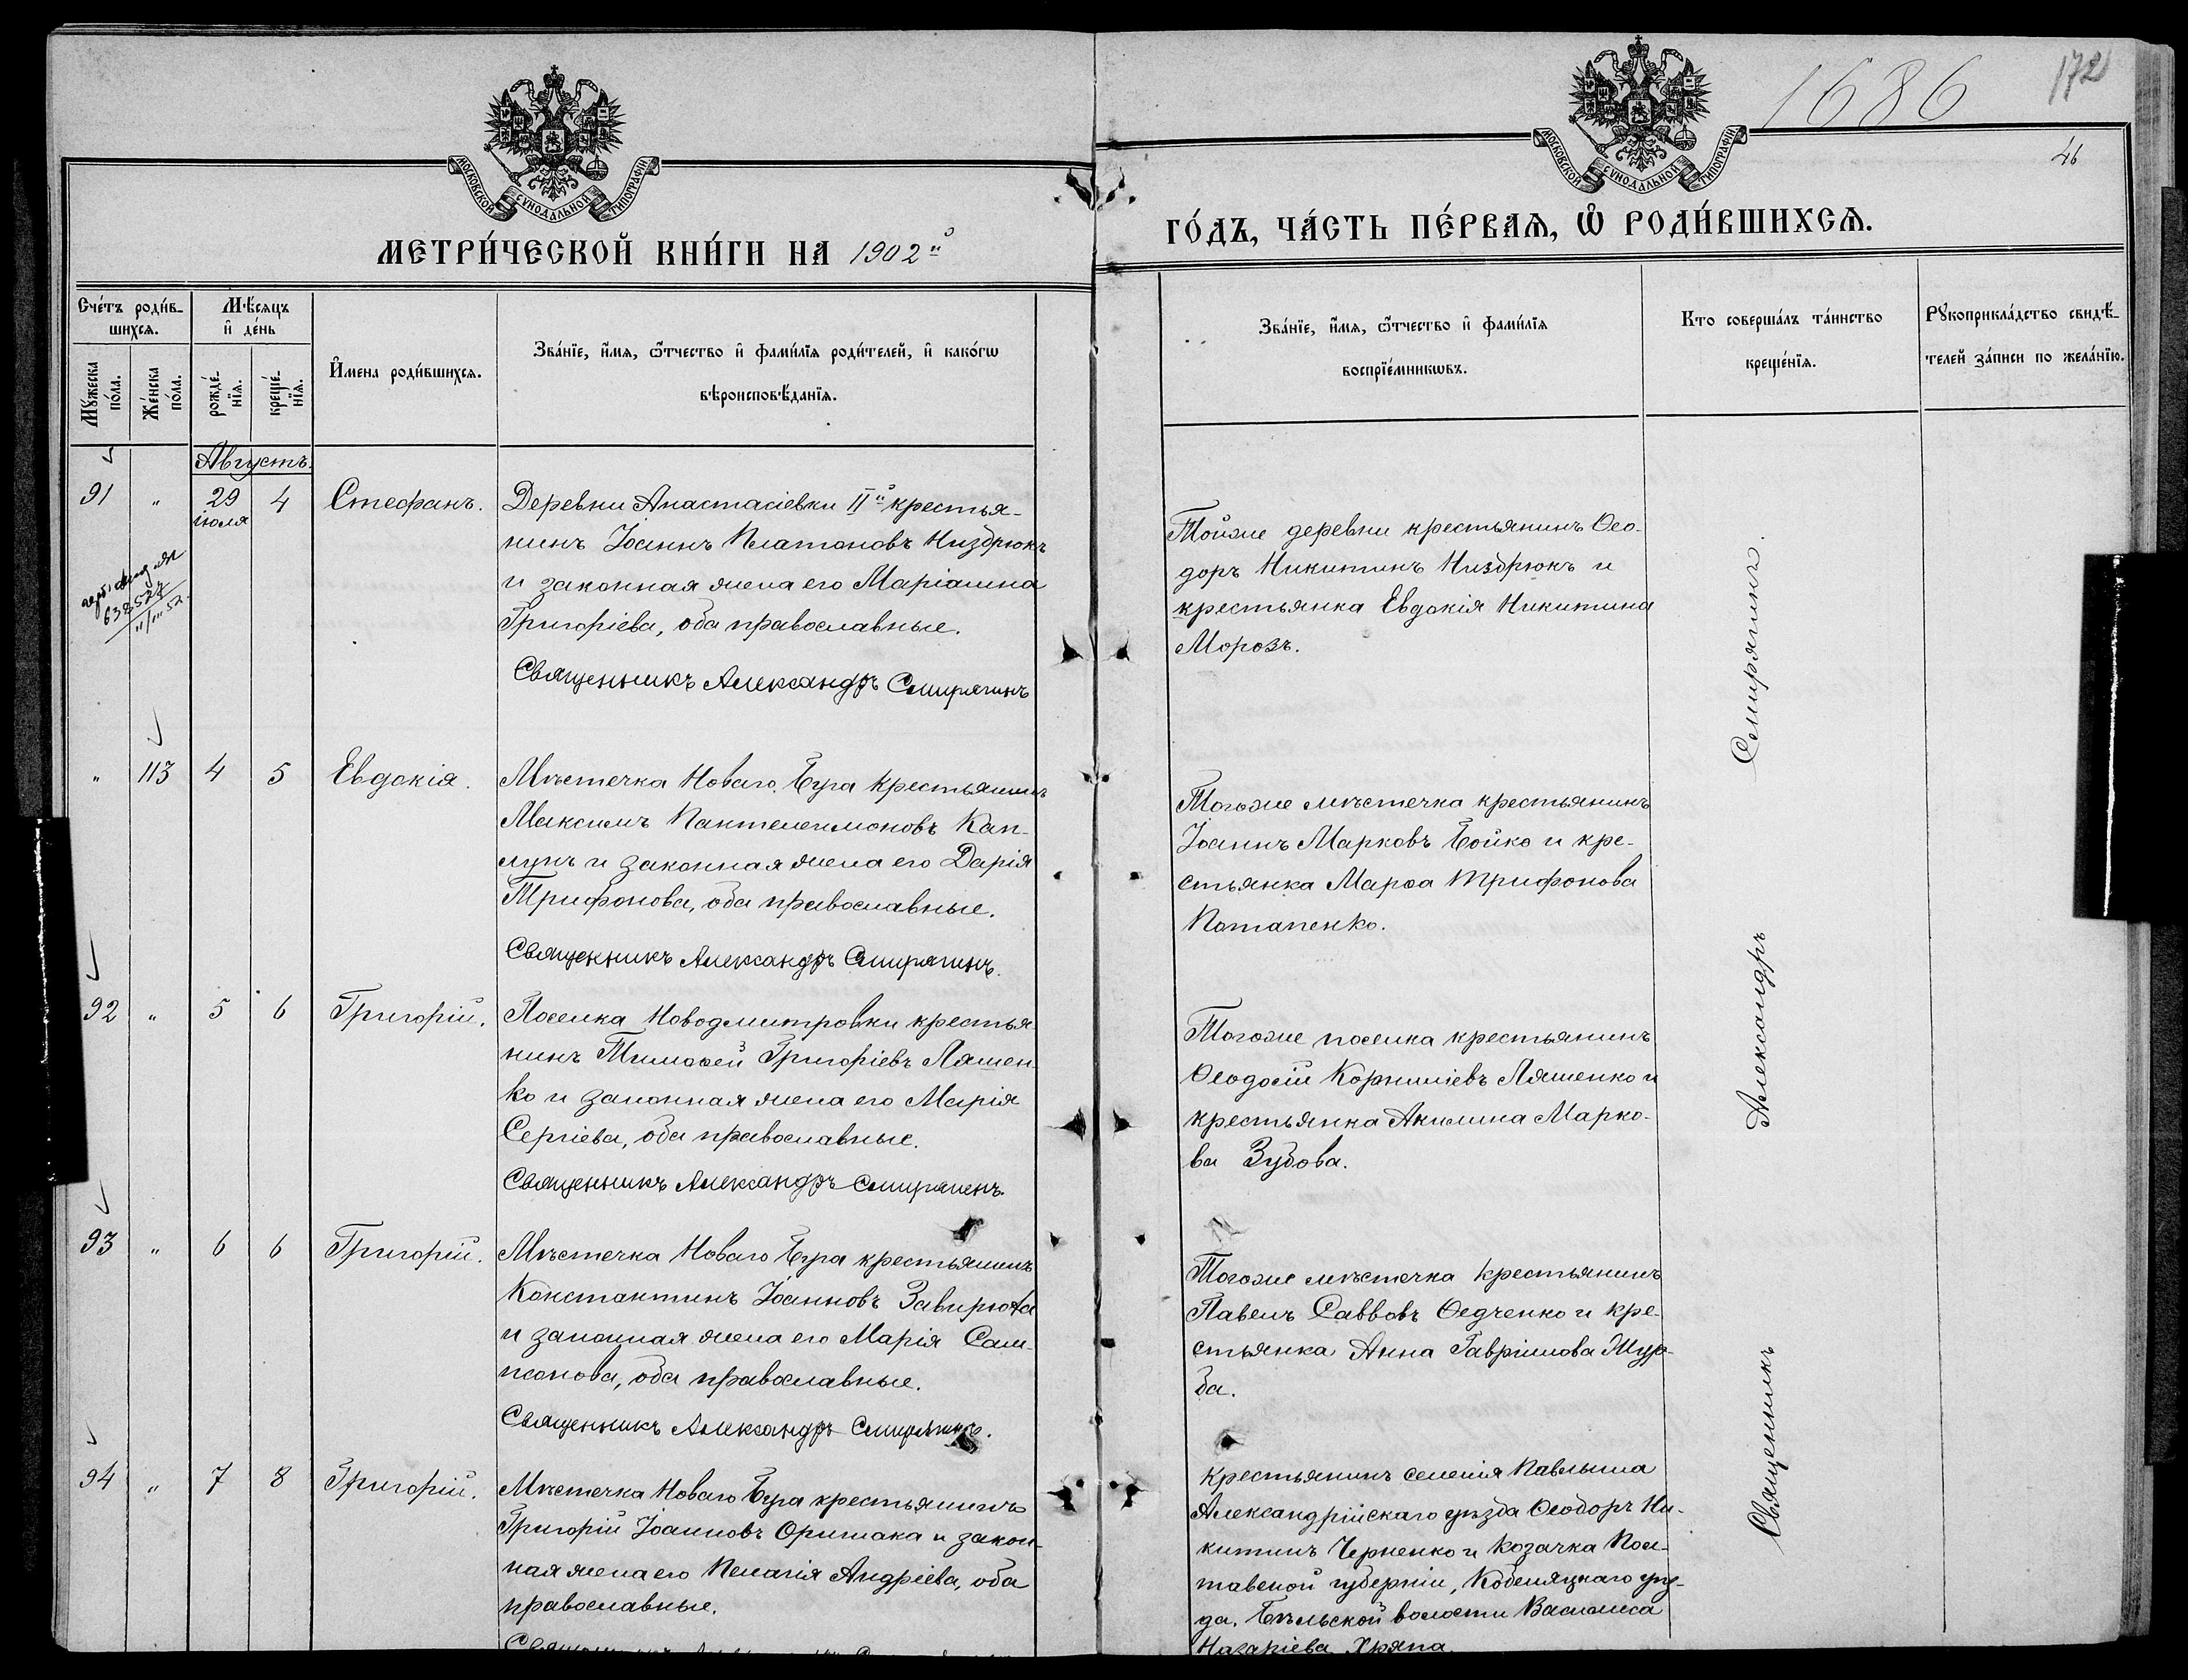 1686
172
46
МОСКОВСКОЙ СѴНОДАЛЬНОЙ ТИПОГРАФІИ
МОСКОВСКОЙ СѴНОДАЛЬНОЙ ТИПОГРАФІИ
МЕТРИ́ЧЕСКОЙ КНИ́ГИ НА 1902й
ГО́ДЪ, ЧА́СТЬ ПЕ́РВАѦ, Ѡ҆ РОДИ́ВШИХСѦ.
Сче́тъ роди́в-
шихсѧ.
Мѣ́сѧцъ
и҆ де́нь
Мꙋ́жеска
по́ла.
Же́нска
по́ла.
рожде́-
нїѧ.
креще́-
нїѧ.
И҆мена роди́вшихсѧ.
Зва́нїе, и҆́мѧ, ѻ҆́тчество и҆ фами́лїѧ роди́телей, и҆ како́гѡ
вѣроисповѣ́данїѧ.
Зва́нїе, и҆́мѧ, ѻ҆́тчество и҆ фами́лїѧ
воспрїе́мникѡвъ.
Кто соверша́лъ та́инство
креще́нїѧ.
Рꙋкоприкла́дство свидѣ́-
телей за́писи по жела́нїю.
Августъ.
91 " 29 іюля 4 Стефанъ.
Деревни Анастасіевки IIй крестья-
нинъ Іоаннъ Платоновъ Низдрюкъ
и законная жена его Маріамна
Григоріева, оба православные.
Священникъ Александръ Смирягинъ
Тойже деревни крестьянинъ Ѳео-
доръ Никитинъ Низдрюкъ и
крестьянка Евдокія Никитина
Морозъ.
" 113 4 5 Евдокія.
Мѣстечка Новаго Буга крестьянинъ
Максимъ Пантелеимоновъ Кап-
лунъ и законная жена его Дарія
Трифонова, оба православные.
Священникъ Александръ Смирягинъ.
Тогоже мѣстечка крестьянинъ
Іоаннъ Марковъ Бойко и кре-
стьянка Марѳа Трифонова
Потапенко.
92 " 5 6 Григорій.
Поселка Новодмитровки крестья-
нинъ Тимоѳей Григоріевъ Ляшен-
ко и законная жена его Марія
Сергіева, оба православные.
Священникъ Александръ Смирягинъ.
Тогоже поселка крестьянинъ
Ѳеодосій Корниліевъ Ляшенко и
крестьянка Акилина Марко-
ва Зубова.
93 " 6 6 Григорій.
Мѣстечка Новаго Буга крестьянинъ
Константинъ Іоанновъ Завирюха
и законная жена его Марія Сам-
псонова, оба православные.
Священникъ Александръ Смирягинъ.
Тогоже мѣстечка крестьянинъ
Павелъ Саввовъ Ѳедченко и кре-
стьянка Анна Гавріилова Жур-
ба.
94 " 7 8 Григорій.
Мѣстечка Новаго Буга крестьянинъ
Григорій Іоанновъ Оришака и закон-
ная жена его Пелагія Андреева, оба
православные.
Крестьянинъ селенія Павлыша
Александрійскаго уѣзда Ѳеодоръ Ни-
китинъ Черненко и козачка Пол-
тавской губерніи, Кобеляцкаго уѣз-
да, Бѣльской волости Василиса
Назаріева Хряпа
Священникъ Александръ Смирягинъ.